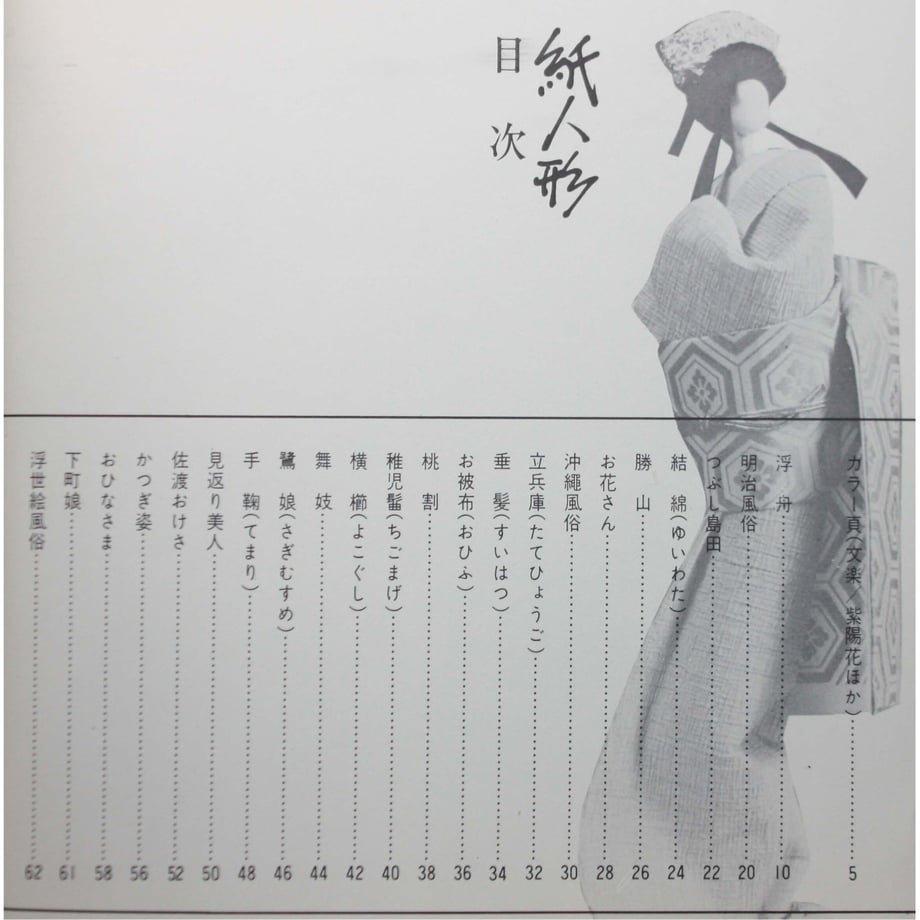 紙人形
目次
カラー頁(文楽／紫陽花ほか)……5
浮舟……10
明治風俗……20
つぶし島田……22
結綿(ゆいわた)……24
勝山……26
お花さん……28
沖縄風俗……30
立兵庫(たてひょうご)……32
垂髪(すいはつ)……34
お被布(おひふ)……36
桃割……38
稚児髷(ちごまげ)……40
横櫛(よこぐし)……42
舞妓……44
鷺娘(さぎむすめ)……46
手鞠(てまり)……48
見返り美人……50
佐渡おけさ……52
かつぎ姿……56
おひなさま……58
下町娘……61
浮世絵風俗……62